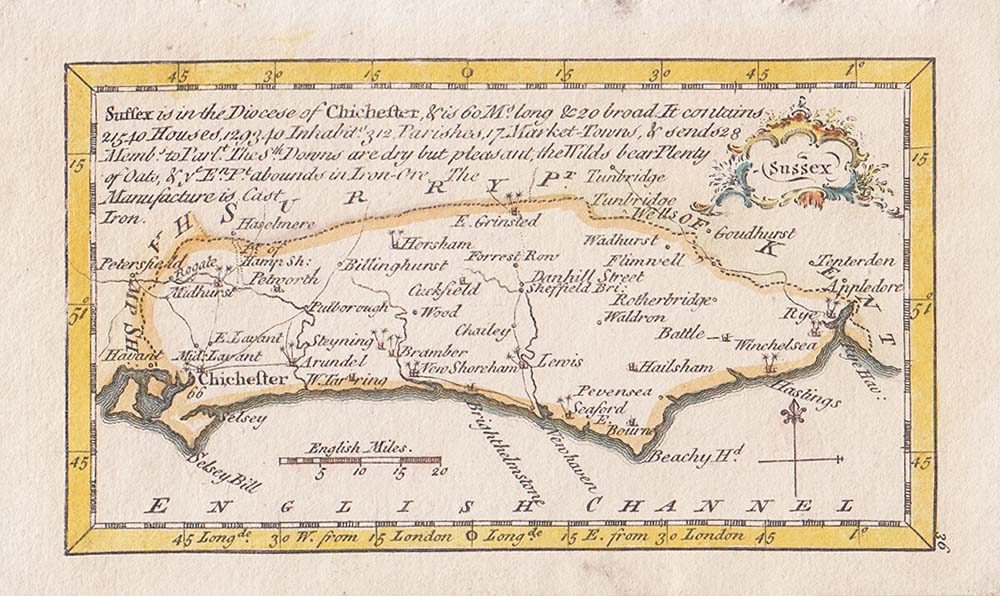 45 30 15 0 15 30 45 1°
Sussex is in the Diocese of Chichester, & is 60 Ms. long & 20 broad. It contains
21540 Houses, 129340 Inhabits. 312 Parishes, 17 Market-Towns, & sends 28
Membs. to Parlt. The Sth. Downs are dry but pleasant, the Wilds bear Plenty
of Oats, & ye En. Pt. abounds in Iron-Ore. The
Manufacture is Cast
Iron.
Sussex
15
15
SURRY
Pt
HAMP SH:
OF KENT
Tunbridge
Tunbridge Wells
Goudhurst
Haselmere
E. Grinsted
Wadhurst
Horsham
Pt. of
Hamp Sh:
Petersfield
Rogate
Billinghurst
Forrest Row
Flimwell
Tenterden
Midhurst
Petworth
Cuckfield
Danhill Street
Sheffield Bri:
Appledore
51°
51°
Pulborough
Wood
Rotherbridge
Waldron
Rye
Chailey
Battle
Winchelsea
Rye Hav:
E. Lavant
Steyning
Havant
Mid. Lavant
Arundel
Bramber
Lewis
Hailsham
Chichester
66
W. Tarring
New Shoreham
Hastings
Selsey
Pevensea
Seaford
E. Bourne
Brighthelmstone
Newhaven
Beachy Hd.
Selsey Bill
English Miles.
5 10 15 20
45
45
ENGLISH CHANNEL
45 Longde. 30 W. from 15 London 0 Longde. 15 E. from 30 London 45
36